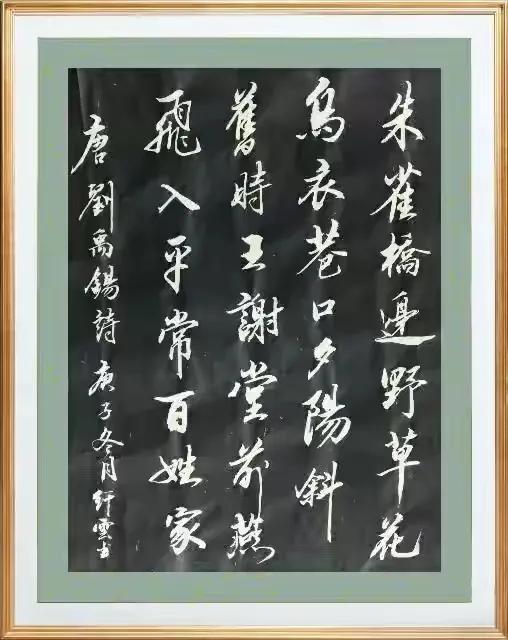 朱雀橋邊野草花
烏衣巷口夕陽斜
舊時王謝堂前燕
飛入平常百姓家
唐劉禹錫詩庚子冬月纤雲書